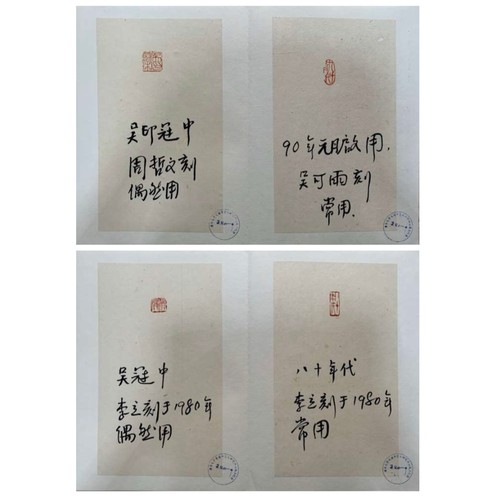 吴印冠中
周哲文刻
偶然用
90年元旦启用.
吴可雨刻
常用.
吴冠中
李立刻于1980年
偶然用
八十年代
李立刻于1980年
常用